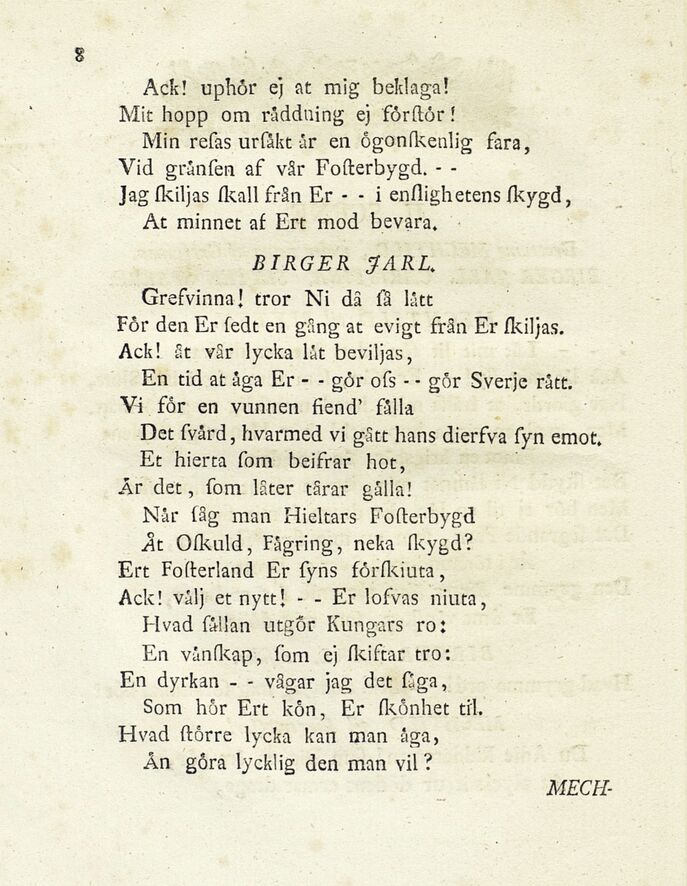 8
Ack! uphör ej at mig beklaga!
Mit hopp om räddning ej förſtör!
Min reſas urſäkt är en ögonſkenlig fara,
Vid gränſen af vår Foſterbygd. - -
Jag ſkiljas ſkall från Er - - i enſlighetens ſkygd,
At minnet af Ert mod bevara.
BIRGER JARL.
Grefvinna! tror Ni då ſå lätt
För den Er ſedt en gång at evigt från Er ſkiljas.
Ack! åt vår lycka låt beviljas,
En tid at äga Er - - gör oſs - - gör Sverje rätt.
Vi för en vunnen fiend' fälla
Det ſvärd, hvarmed vi gått hans dierfva ſyn emot.
Et hierta ſom beifrar hot,
Är det, ſom låter tårar gälla!
När ſåg man Hieltars Foſterbygd
Åt Oſkuld, Fägring, neka ſkygd?
Ert Foſterland Er ſyns förſkiuta,
Ack! välj et nytt! - - Er lofvas niuta,
Hvad ſällan utgör Kungars ro:
En vänſkap, ſom ej ſkiftar tro:
En dyrkan - - vågar jag det ſäga,
Som hör Ert kön, Er ſkönhet til.
Hvad ſtörre lycka kan man äga,
Än göra lycklig den man vil?
MECH-